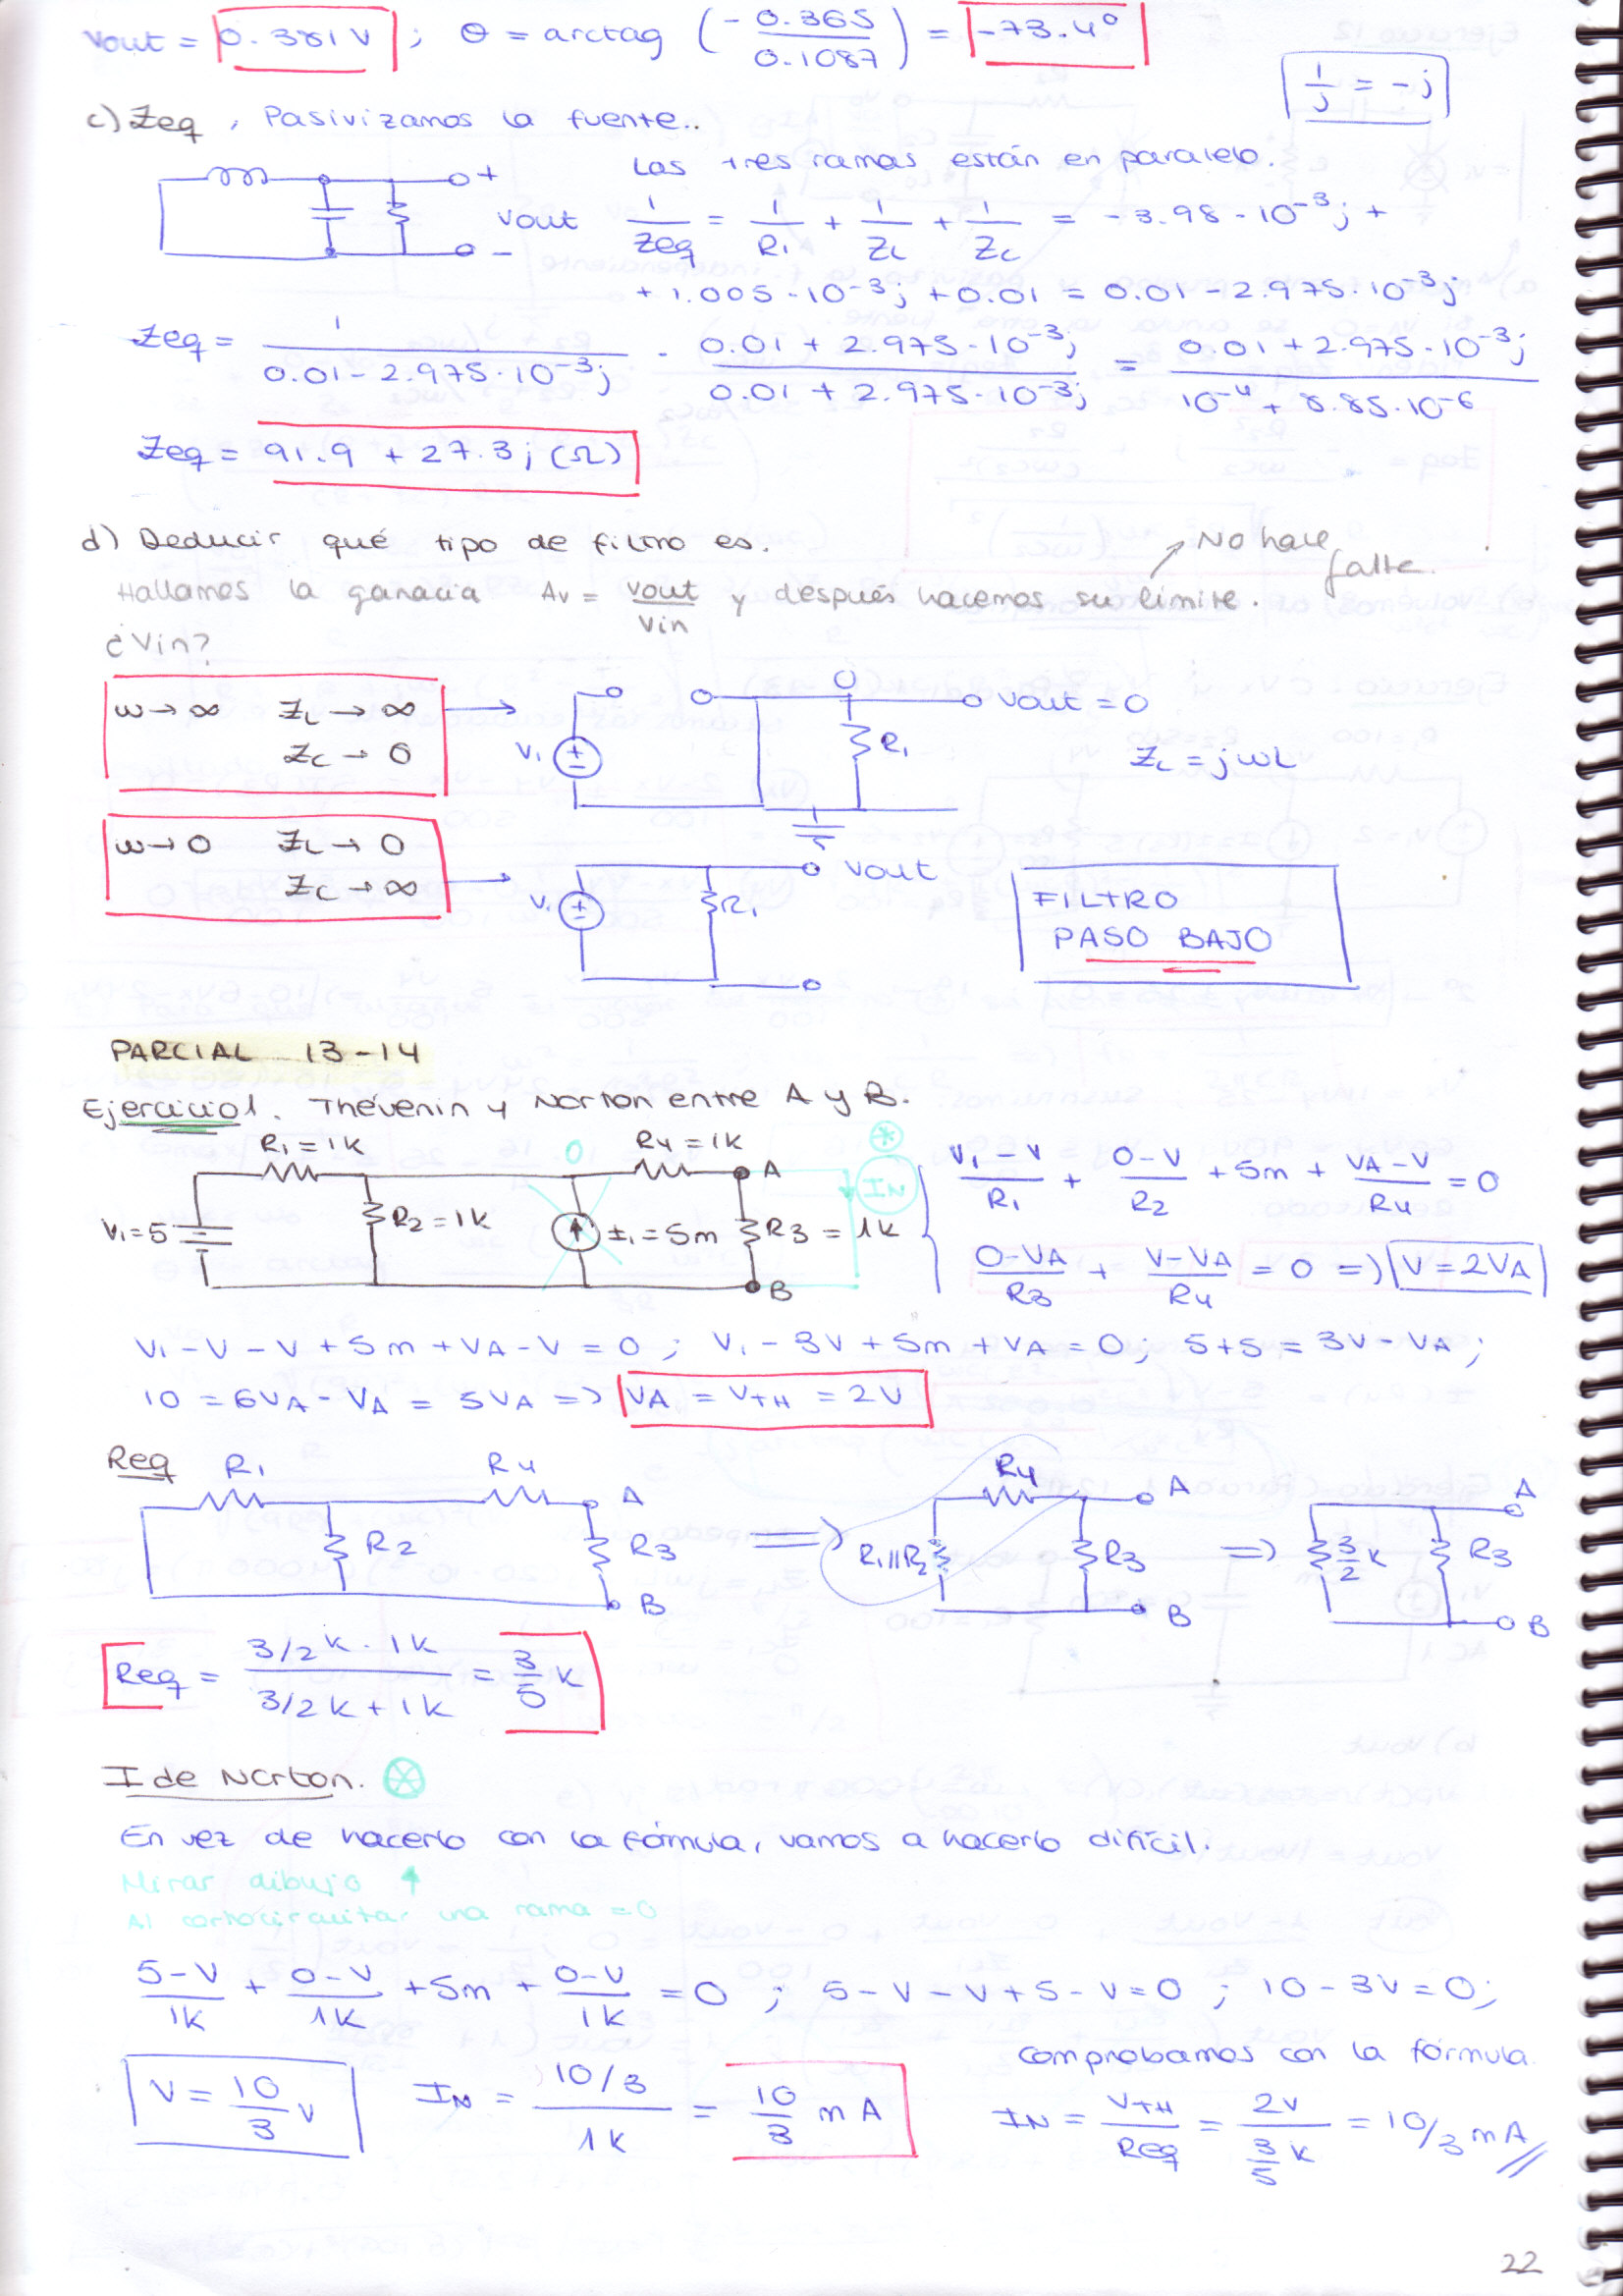 Vout = 0.381 V ; θ = arctag (- 0.365 / 0.1087) = -73.4º
1/j = -j
c) Zeq , Pasivizamos la fuente..
Las tres ramas están en paralelo.
+
Vout
-
1/Zeq = 1/R1 + 1/ZL + 1/ZC = -3.98·10^-3 j +
+ 1.005·10^-3 j + 0.01 = 0.01 - 2.975·10^-3 j
Zeq = 1 / (0.01 - 2.975·10^-3 j) · (0.01 + 2.975·10^-3 j) / (0.01 + 2.975·10^-3 j) = (0.01 + 2.975·10^-3 j) / (10^-4 + 8.85·10^-6)
Zeq = 91.9 + 27.3 j (Ω)
d) Deducir qué tipo de filtro es.
No hace falta.
Hallamos la ganacia Av = Vout/Vin y después hacemos su límite.
¿Vin?
ω → ∞ ZL → ∞
ZC → 0
V1 + - 0 R1 Vout = 0
ZL = jωL
ω → 0 ZL → 0
ZC → ∞
V1 + - R1 Vout
FILTRO
PASO BAJO
PARCIAL 13-14
Ejercicio 1. Thévenin y Norton entre A y B.
R1 = 1k 0 R4 = 1k A
V1 = 5 R2 = 1k I1 = 5m R3 = 1k B
(V1 - V)/R1 + (0 - V)/R2 + 5m + (VA - V)/R4 = 0
(0 - VA)/R3 + (V - VA)/R4 = 0 => V = 2VA
V1 - V - V + 5m + VA - V = 0 ; V1 - 3V + 5m + VA = 0 ; 5+5 = 3V - VA ;
10 = 6VA - VA = 5VA => VA = VTH = 2V
Req R1 R4 A
R2 R3 B
=> R4 A R1||R2 R3 B
=> 3/2 k R3 A B
Req = (3/2 k · 1k) / (3/2 k + 1k) = 3/5 k
I de Norton.
En vez de hacerlo con la fórmula, vamos a hacerlo difícil.
Mirar dibujo ↑
Al cortocircuitar una rama = 0
(5 - V)/1k + (0 - V)/1k + 5m + (0 - V)/1k = 0 ; 5 - V - V + 5 - V = 0 ; 10 - 3V = 0 ;
Comprobamos con la fórmula.
V = 10/3 V IN = (10/3)/1k = 10/3 mA
IN = VTH/Req = 2V / (3/5 k) = 10/3 mA
22